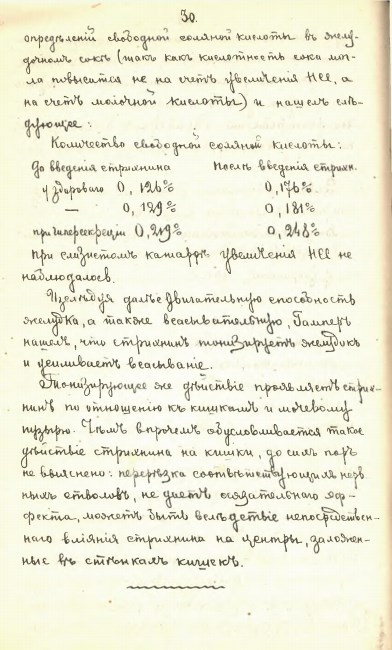 30.
опредѣленій свободной соляной кислоты въ желу-
дочномъ сокѣ (такъ какъ кислотность сока мог-
ла повыситься не на счетъ увеличенія HCl, а
на счетъ молочной кислоты) и нашелъ слѣ-
дующее:
Количество свободной соляной кислоты:
До введенія стрихнина Послѣ введенія стрихн.
у здороваго 0,126% 0,176%
— 0,129% 0,181%
при гиперсекреціи 0,219% 0,248%
При слизистомъ катаррѣ увеличенія HCl не
наблюдалось.
Изслѣдуя далѣе двигательную способность
желудка, а также всасывательную, Гамперъ
нашелъ, что стрихнинъ тонизируетъ желудокъ
и усиливаетъ всасываніе.
Тонизирующее же дѣйствіе проявляетъ стрих-
нинъ по отношенію къ кишкамъ и мочевому
пузырю. Чѣмъ впрочемъ обусловливается такое
дѣйствіе стрихнина на кишки, до сихъ поръ
не выяснено: перерѣзка соотвѣтствующихъ нерв
ныхъ стволовъ, не даетъ осязательнаго эф-
фекта, можетъ быть вслѣдствіе непосредствен-
наго вліянія стрихнина на центры, заложен-
ные въ стѣнкахъ кишекъ.